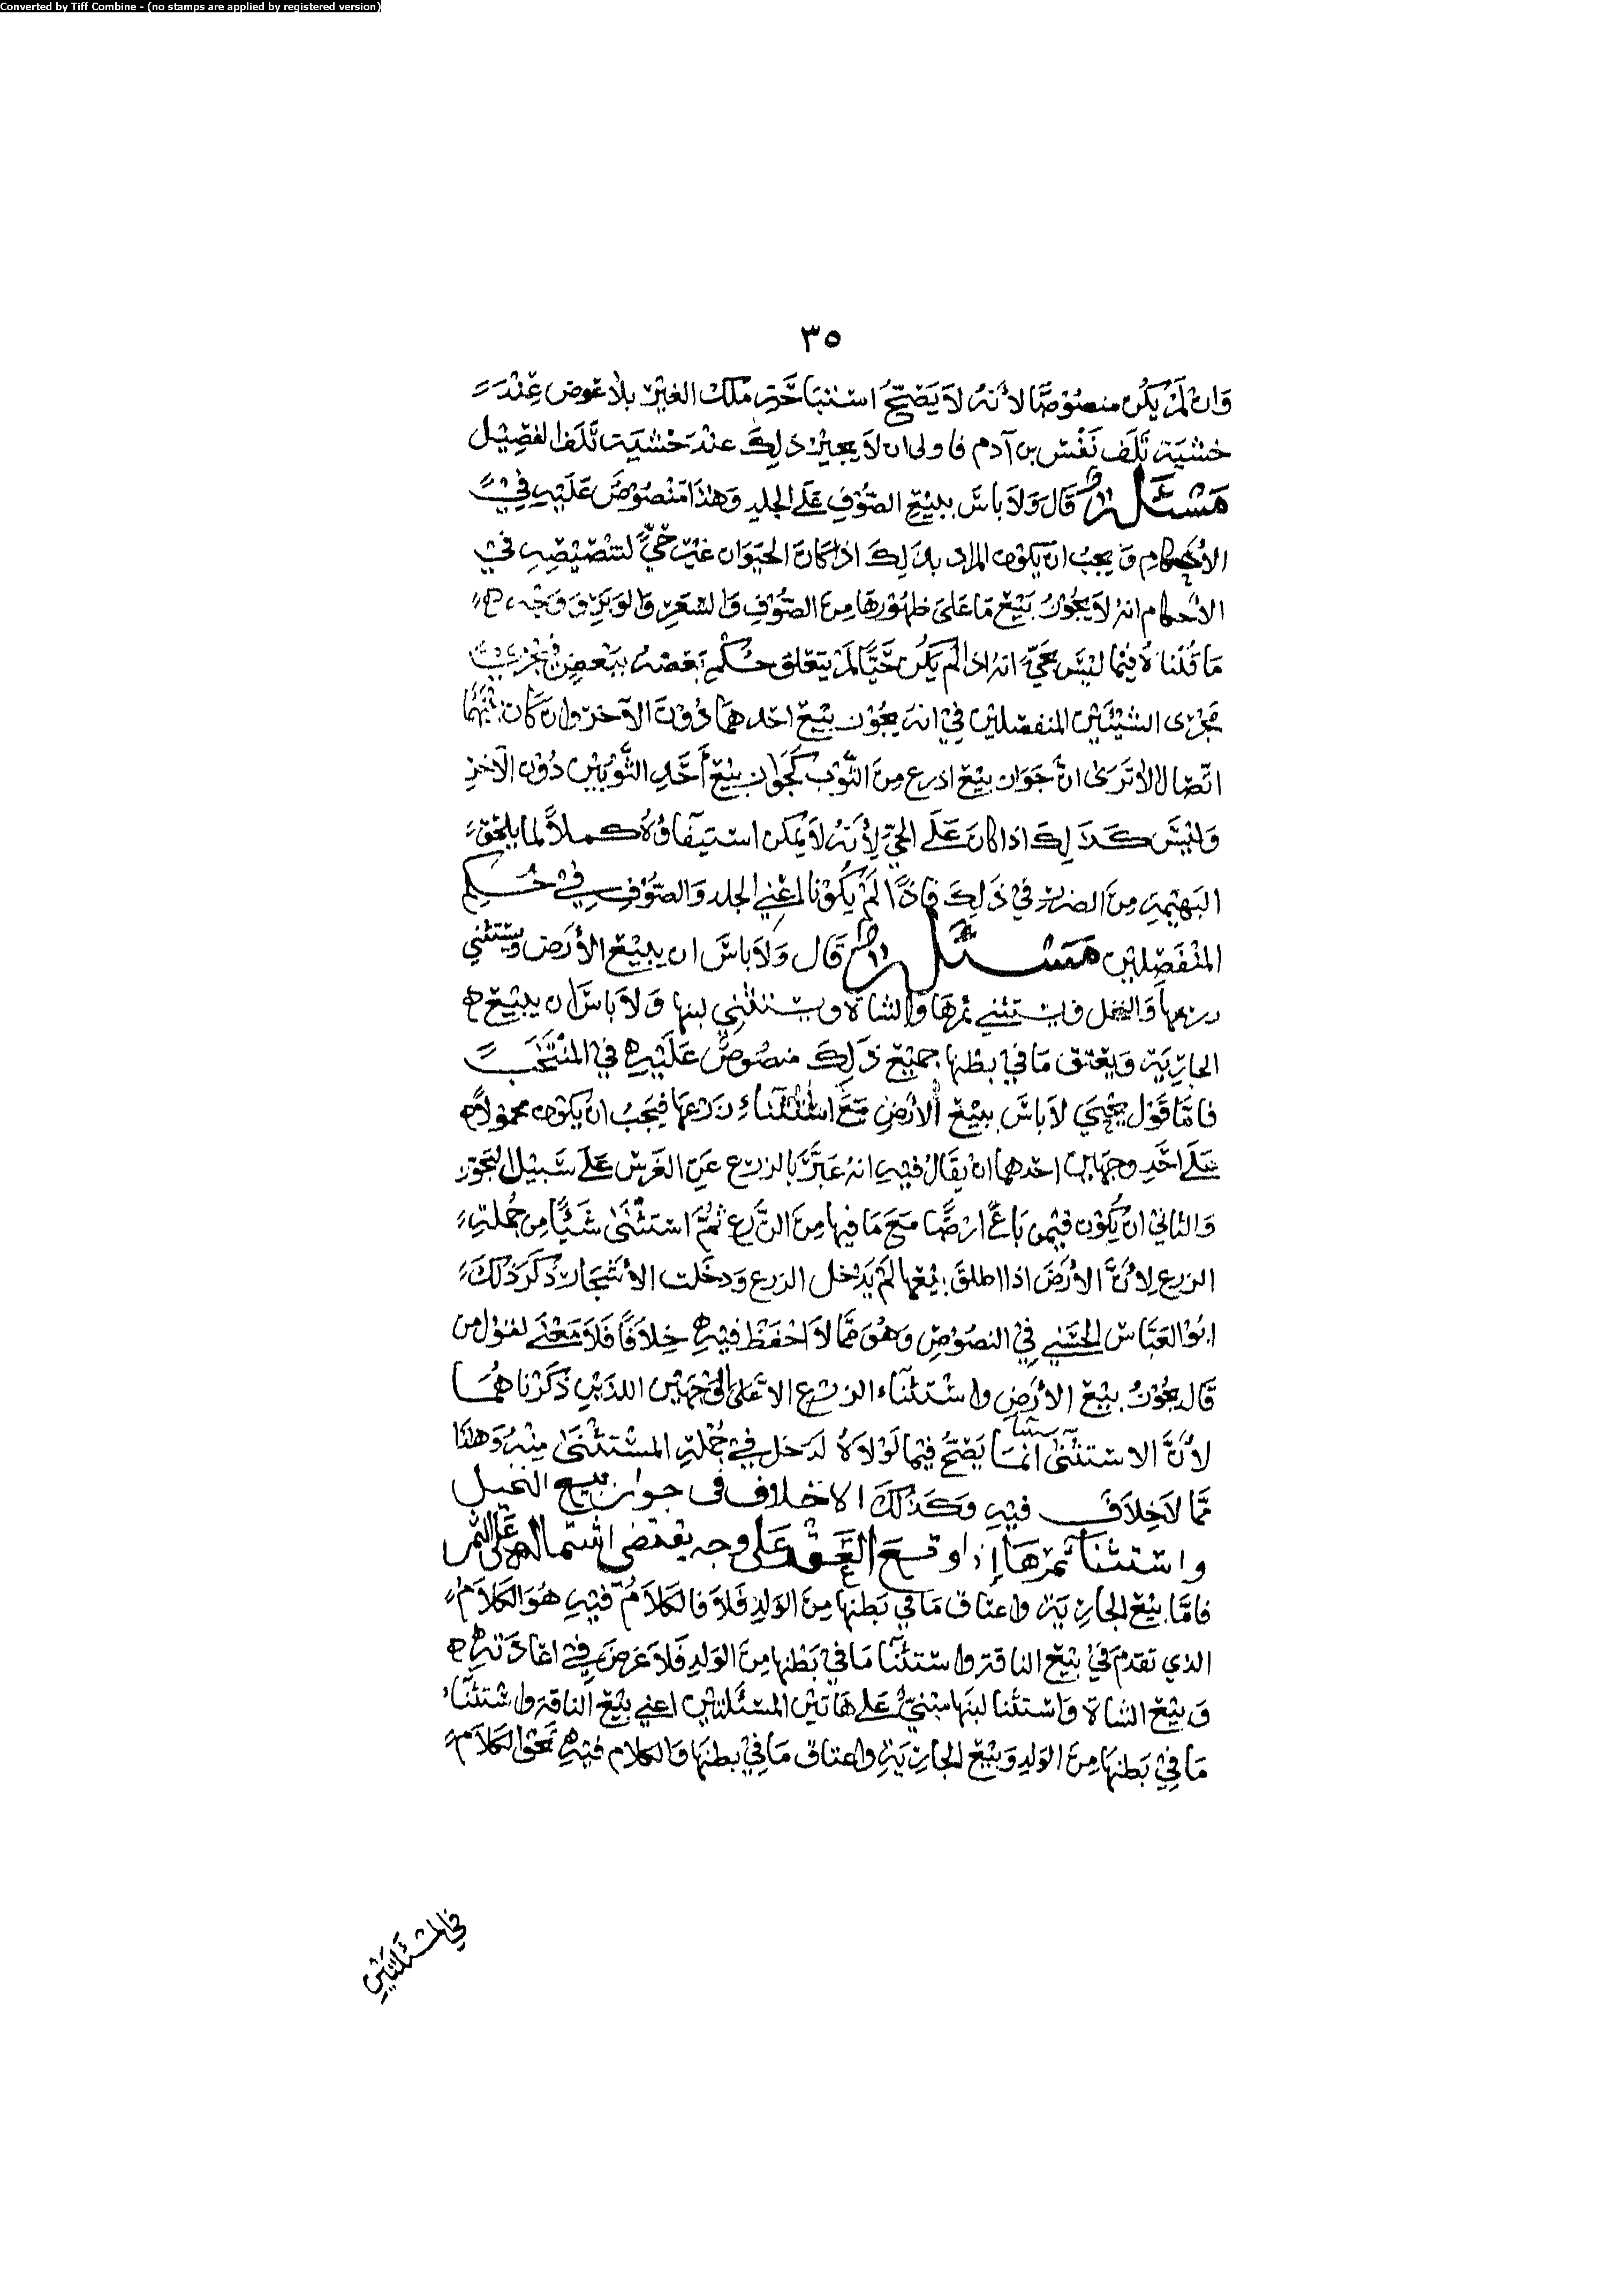 Converted by Tiff Combine - (no stamps are applied by registered version)
٣٥
وَان لَمْ يَكُن منصُوْصًا لأنهُ لاَ يَصِحُّ اسْتبَاحَةِ مِلْك الغَيْر بلاَ عوَض عِنْدَ
خشيَة تَلَف نَفْس بن آدم فاولى ان لاَ يجيْز ذلِكَ عنْدَ خشيَة تَلَف الفصِيْل
مَسْئَلة قَال وَلاَ باسَ ببيْعِ الصُّوْفِ عَلَى الجلدِ وَهٰذا مَنْصُوْصٌ عَلَيْهِ فِيْ
الأحكامِ وَيجبُ ان يكوْن المراد بذلِكَ اذا كانَ الحيَوَان غيْر حَيٍّ لتنْصِيْصِهِ فيْ
الأحكام انهُ لاَ يجُوْزُ بَيْعَ مَا عَلىَ ظهُوْرِهَا مِنَ الصُّوْفِ وَالشعَرِ وَالوَبَرِ وَوَجْه
مَا قُلنَاهُ فيْمَا ليْسَ بحَيٍّ انهُ اذا لَمْ يَكُن حَيًّا لَمْ يتعَلق حُكْم بَعضهُ ببَعْضٍ فيجْري
مجْرَى الشيْئَيْن المنفصِليْن فيْ انهُ يجُوْز بيْعَ احَدهمَا دُوْنَ الآخَر وان كَان بيْنَهُمَا
اتّصَال الاَ ترَىٰ انَّ جَوَاز بيْع اذرع مِنَ الثَّوْب كجَوَاز بيْعَ أحَدِ الثَّوْبَيْن دُوْنَ الآخَرِ
وَليْسَ كَذَلِكَ اذا كانَ عَلَى الحَيِّ لِأَنَّهُ لاَ يمكن استيْفاؤُهُ كملاً لما يلحَق
البَهيْمَةِ مِنَ الضرَر فيْ ذَلِكَ فاذَا لَمْ يكُوْنا اعْنِي الجلد وَالصُّوْفِ فِيْ حُكمِ
المنْفَصِليْن مَسْئَلة قَال وَلاَ باسَ ان يبيْعَ الأرَض وَيستَثْني
زرعهَا وَالنخل فيستثني ثمرهَا وَالشاةَ ويستثنِي لبنها وَلاَ باسَ ان يبيْعَ
الجارِيَة وَيعْتق مَا في بطنهَا جميْعَ ذَلِكَ منصُوْصٌ عَلَيْهِ فيْ المنْتَخَب
فامَّا قَوْل يحْيىَ لاَ باسَ ببيْعَ الأرَضِ مَعَ اسْتثْنَاءِ زَرْعهَا فيَجبُ ان يكوْن محموْلاً
عَلَى احَدِ وجهَيْن احَدهمَا ان يقَالُ فيْهِ انهُ عَبَّرَ بالزرْع عَنِ الغَرْس عَلَى سَبيْل التجَوّز
وَالثاني ان يكُوْن فيْمن بَاعَ ارْضًا مَعَ مَا فيها مِنَ الزَّرع ثُمَّ اسْتثْنَىٰ شَيْئًا مِن جُملتِ
الزرع لِأَنَّ الأَرَضَ اذا اطلقَ بيْعهَا لَمْ يَدْخل الزرع وَدخَلت الأشْجَار ذكَرَ ذَلكَ
ابُو العَبَّاس الحسَنِي فيْ النصُوْصِ وَهُوَ ممَّا لاَ احْفَظُ فيْهِ خِلاَفًا فَلاَ مَعْنَى لقَوْل مَن
قَال يجُوْزُ بيْعَ الأرَضِ واسْتثنَاء الزرْع الا عَلىَ الوَجْهَيْن اللذَيْنِ ذَكَرْناهُمَا
لأَنَّ الاسْتثنَىٰ انَّمَا يَصِحُّ فيْما لَوْلاَهُ لدَخل فيْ جُمْلتِ المسْتثْنَىٰ مِنْهُ وَهٰذا
ممَّا لاَ خِلاَفَ فيْهِ وَكَذٰلكَ الاخلاف فى جواز بيع النخيل
واستثنا ثمرهَا إذا وقعَ العَقْدُ عَلى وجه يقتضى اشتماله عَلى الثمر
فامَّا بيْعَ الجارِيَة واعتاق مَا في بَطنهَا مِنَ الوَلدِ فَلاَ فالكَلاَمُ فيْهِ هُوَ الكَلاَمُ
الذي تقدمَ فيْ بيْعَ الناقَة واسْتثنَا مَا فيْ بَطْنهَا مِنَ الوَلدِ فَلاَ غرَضَ فِيْ اعَادَتهِ
وَبيْعَ الشاةَ وَاسْتثنا لبنَها مبْنيٌّ عَلى هَاتيْن المسْئَلتيْن اعني بيْعَ الناقَة واسْتثنَاء
مَا فيْ بَطنهَا مِنَ الوَلدِ وَبيْعَ الجارِيَةِ واعتاق مَا فيْ بطنهَا وَالكلام فيْهِ نَحْوَ الكَلاَمِ
في المسْئَلتَيْنِ